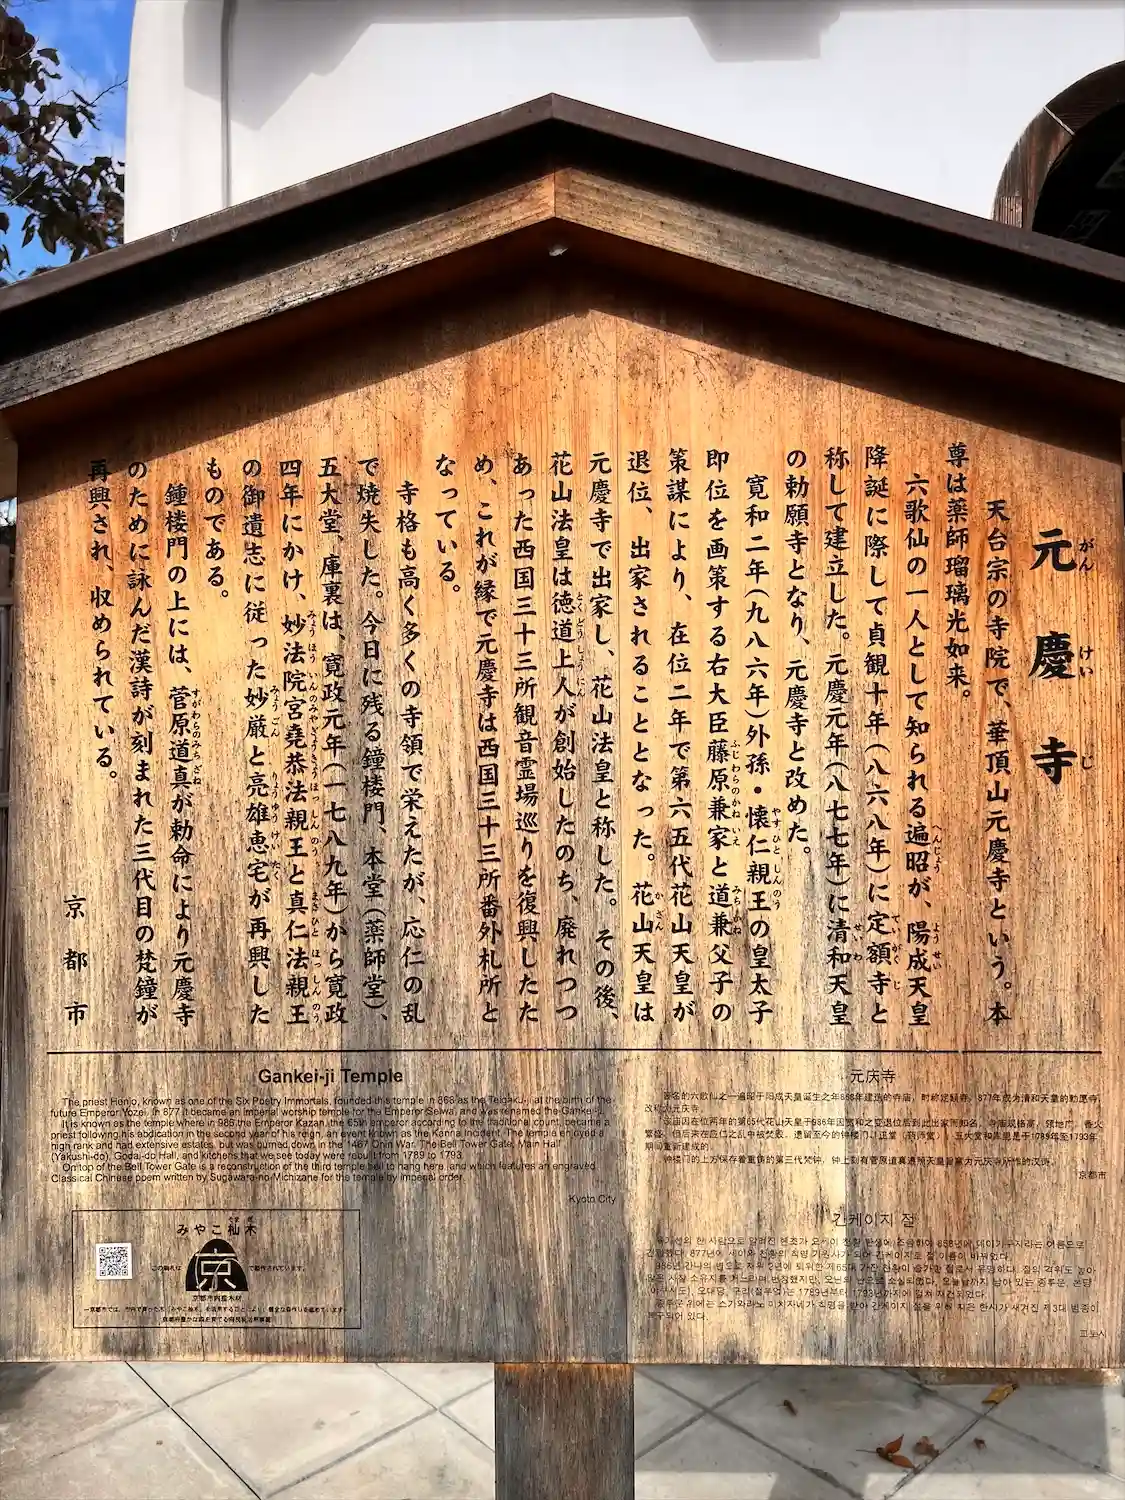 元慶寺
がんけいじ
天台宗の寺院で、華頂山元慶寺という。本
尊は薬師瑠璃光如来。
六歌仙の一人として知られる遍昭が、陽成天皇
へんじょう
ようぜい
降誕に際して貞観十年(八六八年)に定額寺と
ていがくじ
称して建立した。元慶元年(八七七年)に清和天皇
せいわ
の勅願寺となり、元慶寺と改めた。
寛和二年(九八六年)外孫・懐仁親王の皇太子
やすひとしんのう
即位を画策する右大臣藤原兼家と道兼父子の
ふじわらのかねいえ
みちかね
策謀により、在位二年で第六五代花山天皇が
退位、出家されることとなった。花山天皇は
かざん
元慶寺で出家し、花山法皇と称した。その後、
花山法皇は徳道上人が創始したのち、廃れつつ
とくどうしょうにん
あった西国三十三所観音霊場巡りを復興したた
め、これが縁で元慶寺は西国三十三所番外札所と
なっている。
寺格も高く多くの寺領で栄えたが、応仁の乱
で焼失した。今日に残る鐘楼門、本堂(薬師堂)、
五大堂、庫裏は、寛政元年(一七八九年)から寛政
四年にかけ、妙法院宮堯恭法親王と真仁法親王
みょうほういんのみやぎょうきょうほっしんのう
まさひとほっしんのう
の御遺志に従った妙厳と亮雄恵宅が再興した
みょうごん
りょうゆうけいたく
ものである。
鐘楼門の上には、菅原道真が勅命により元慶寺
すがわらのみちざね
のために詠んだ漢詩が刻まれた三代目の梵鐘が
再興され、収められている。
京都市
Gankei-ji Temple
The priest Henjo, known as one of the Six Poetry Immortals, founded this temple in 868 as the Teigaku-ji at the birth of the
future Emperor Yozei. In 877 it became an imperial worship temple for the Emperor Seiwa, and was renamed the Gankei-ji.
It is known as the temple where in 986 the Emperor Kazan, the 65th emperor according to the traditional count, became a
priest following his abdication in the second year of his reign, an event known as the Kanna Incident. The temple enjoyed a
high rank and had extensive estates, but was burned down in the 1467 Onin War. The Bell Tower Gate, Main Hall
(Yakushi-do), Godai-do Hall, and kitchens that we see today were rebuilt from 1789 to 1793.
On top of the Bell Tower Gate is a reconstruction of the third temple bell to hang here, and which features an engraved
Classical Chinese poem written by Sugawara-no-Michizane for the temple by imperial order.
Kyoto City
元庆寺
京都市
간케이지 절
교토시
みやこ杣木
京
京都市内産木材